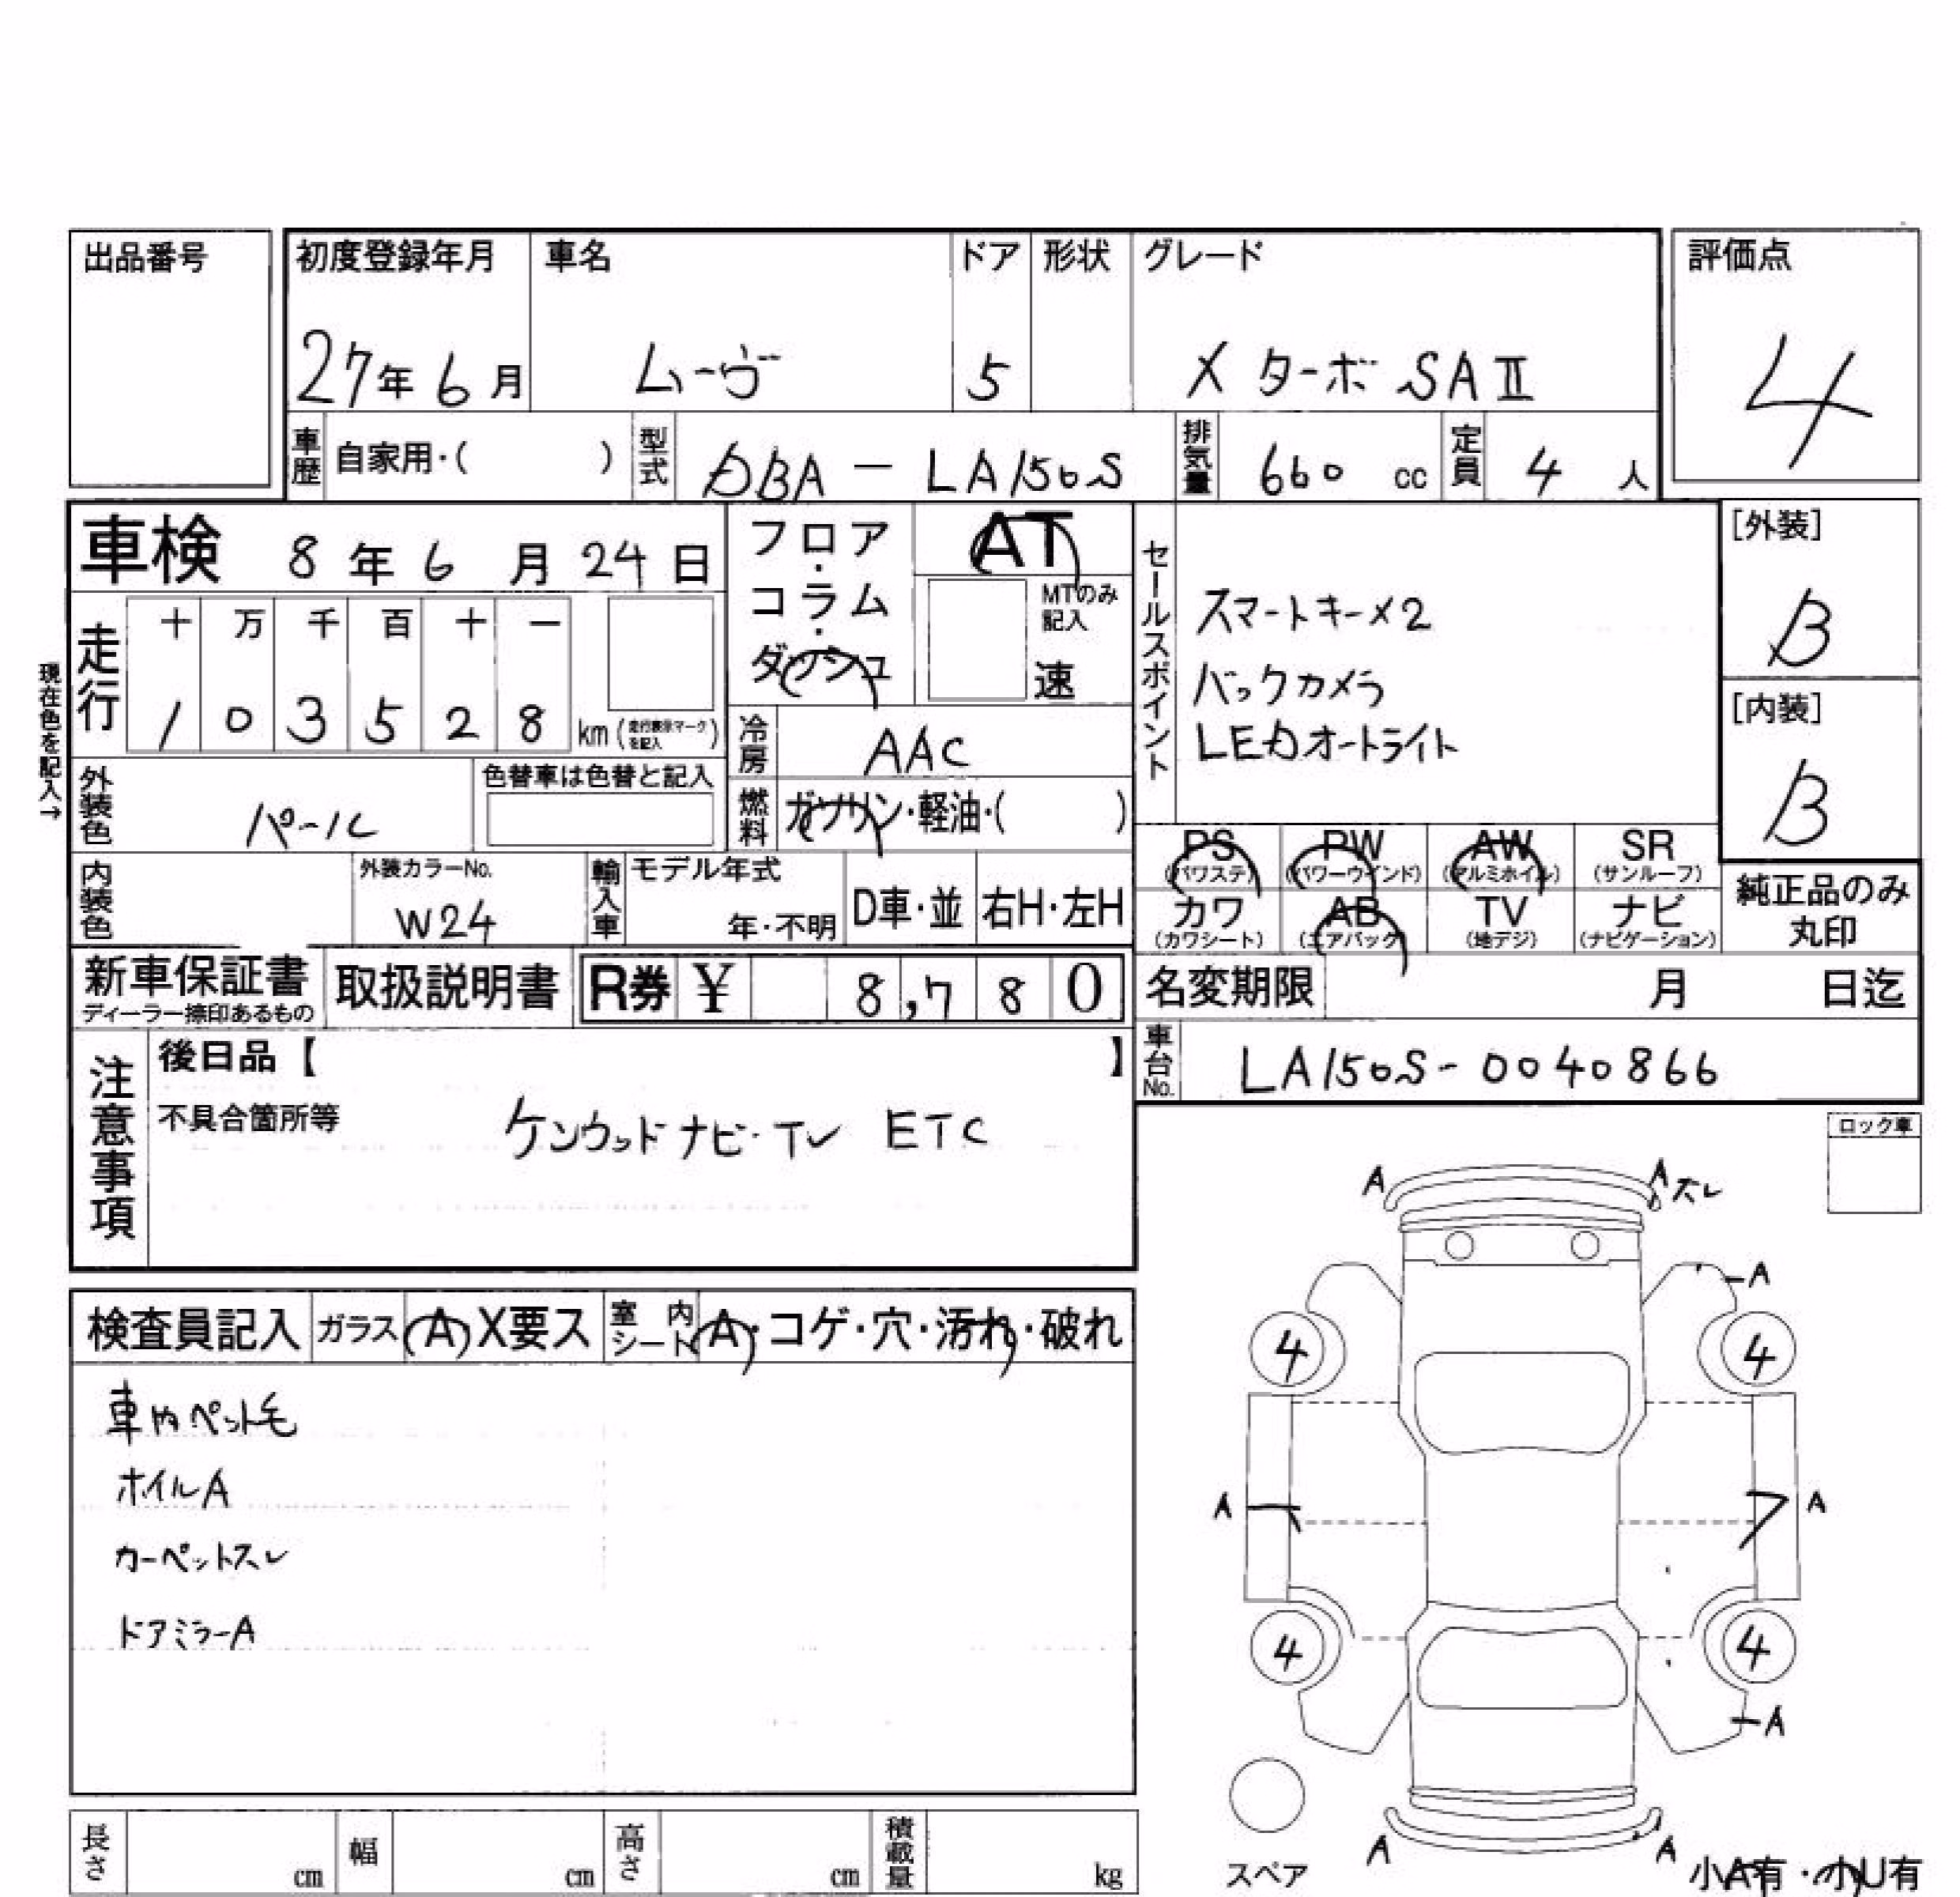 出品番号
初度登録年月 車名 ドア 形状 グレード 評価点
27年6月 ムーヴ 5 X ターボ SAⅡ 4
車歴 自家用・( ) 型式 DBA - LA150S 排気量 660 cc 定員 4 人
車検 8年6月24日
フロア・コラム・ダッシュ
AT
MTのみ記入
速
走行 十 万 千 百 十 一
1 0 3 5 2 8 km (走行表示マークを記入)
現在色を記入→
冷房 AAC
燃料 ガソリン・軽油・( )
セールスポイント
スマートキー×2
バックカメラ
LEDオートライト
[外装]
B
[内装]
B
外装色 パール 色替車は色替と記入
内装色 外装カラーNo. W24 輸入車 モデル年式 年・不明 D車・並 右H・左H
PS (パワステ) PW (パワーウインド) AW (アルミホイル) SR (サンルーフ)
カワ (カワシート) AB (エアバック) TV (地デジ) ナビ (ナビゲーション)
純正品のみ
丸印
新車保証書 ディーラー捺印あるもの 取扱説明書 R券 ¥ 8,780
名変期限 月 日迄
車台No. LA150S-0040866
注意事項
後日品【 】
不具合箇所等 ケンウッドナビ・TV ETC
ロック車
検査員記入 ガラス A X要ス 室内シート A・コゲ・穴・汚れ・破れ
車内ペット毛
ホイルA
カーペットスレ
ドアミラーA
A A スレ
A
4 4
A A
4 4
A
A A
スペア
小A有・小U有
長さ cm 幅 cm 高さ cm 積載量 kg